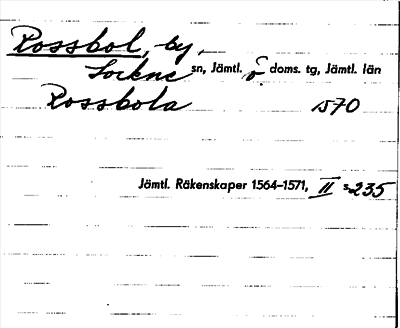 Rossbol, by,
Lockne sn, Jämtl. ö doms. tg, Jämtl. län
Rossbola 1570
Jämtl. Räkenskaper 1564–1571, II s. 235